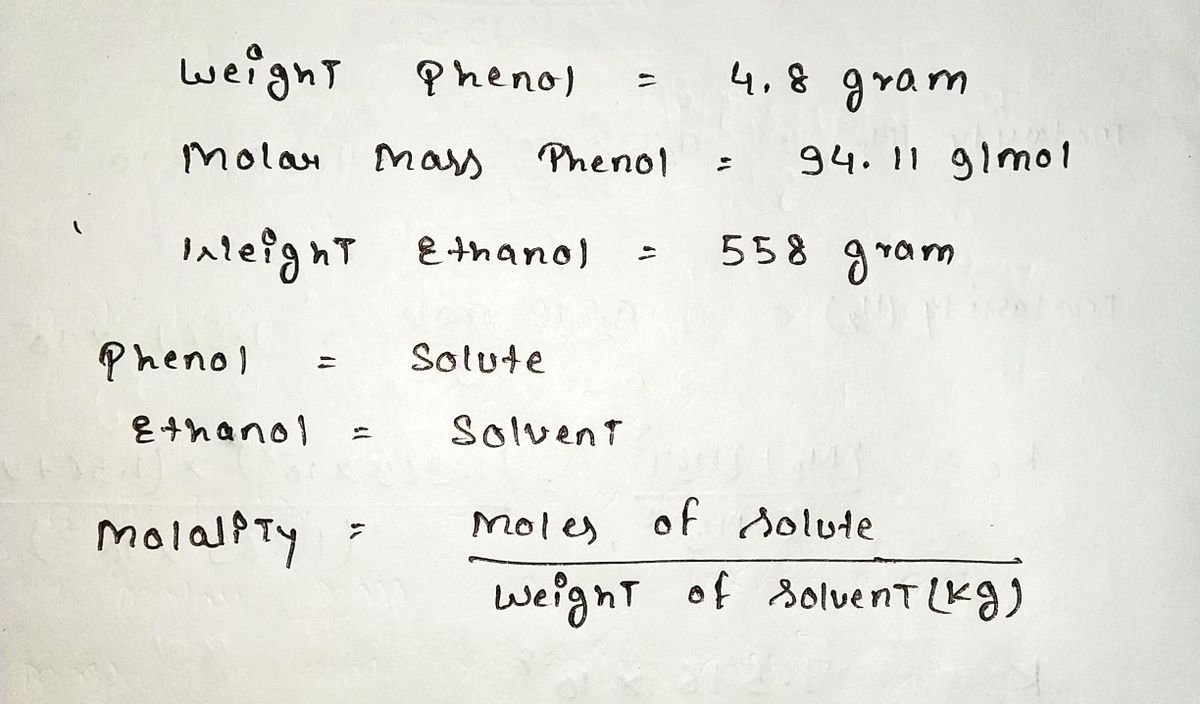 Weight Phenol = 4.8 gram
Molar Mass Phenol = 94.11 g/mol
Weight Ethanol = 558 gram
Phenol = Solute
Ethanol = Solvent
Molality = Moles of solute
Weight of solvent (kg)